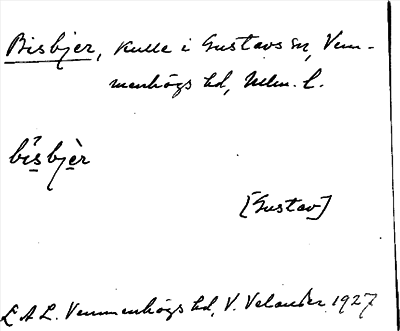 Bisbjer, Kulle i Gustavs sn, Vem-
menhögs hd, Mlm. l.
bi̱sbjèr
[Gustav]
L A L. Vemmenhögs hd, V. Velander 1927